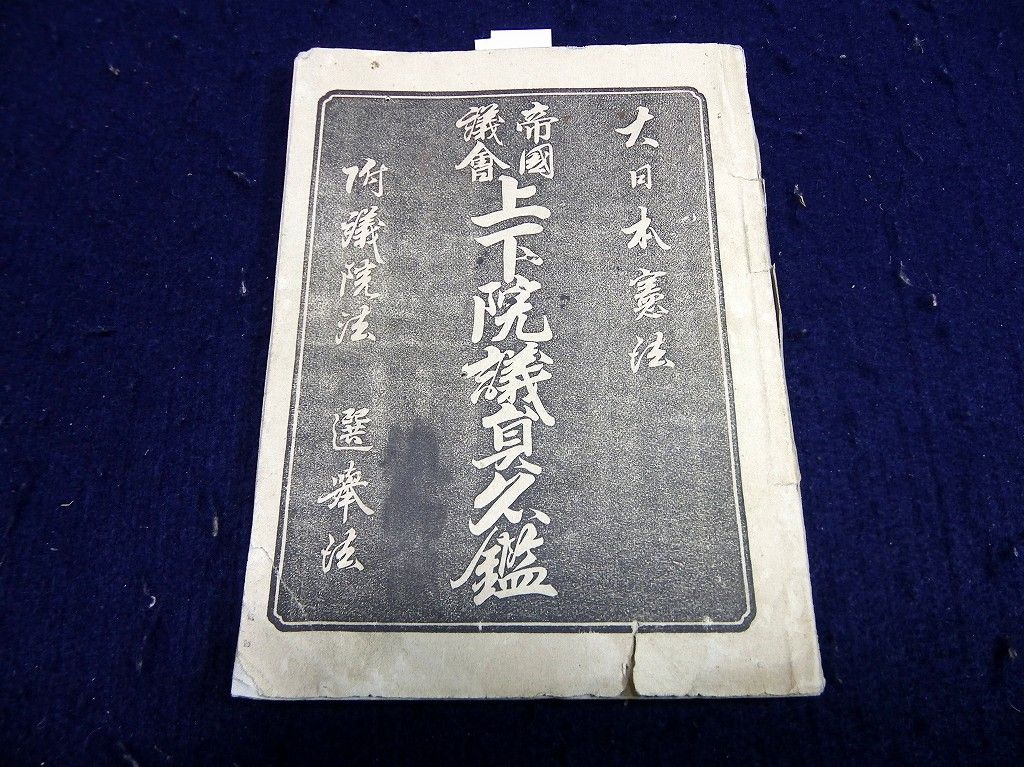 大日本憲法
帝國
議會
上下院議員名鑑
附議院法 選擧法